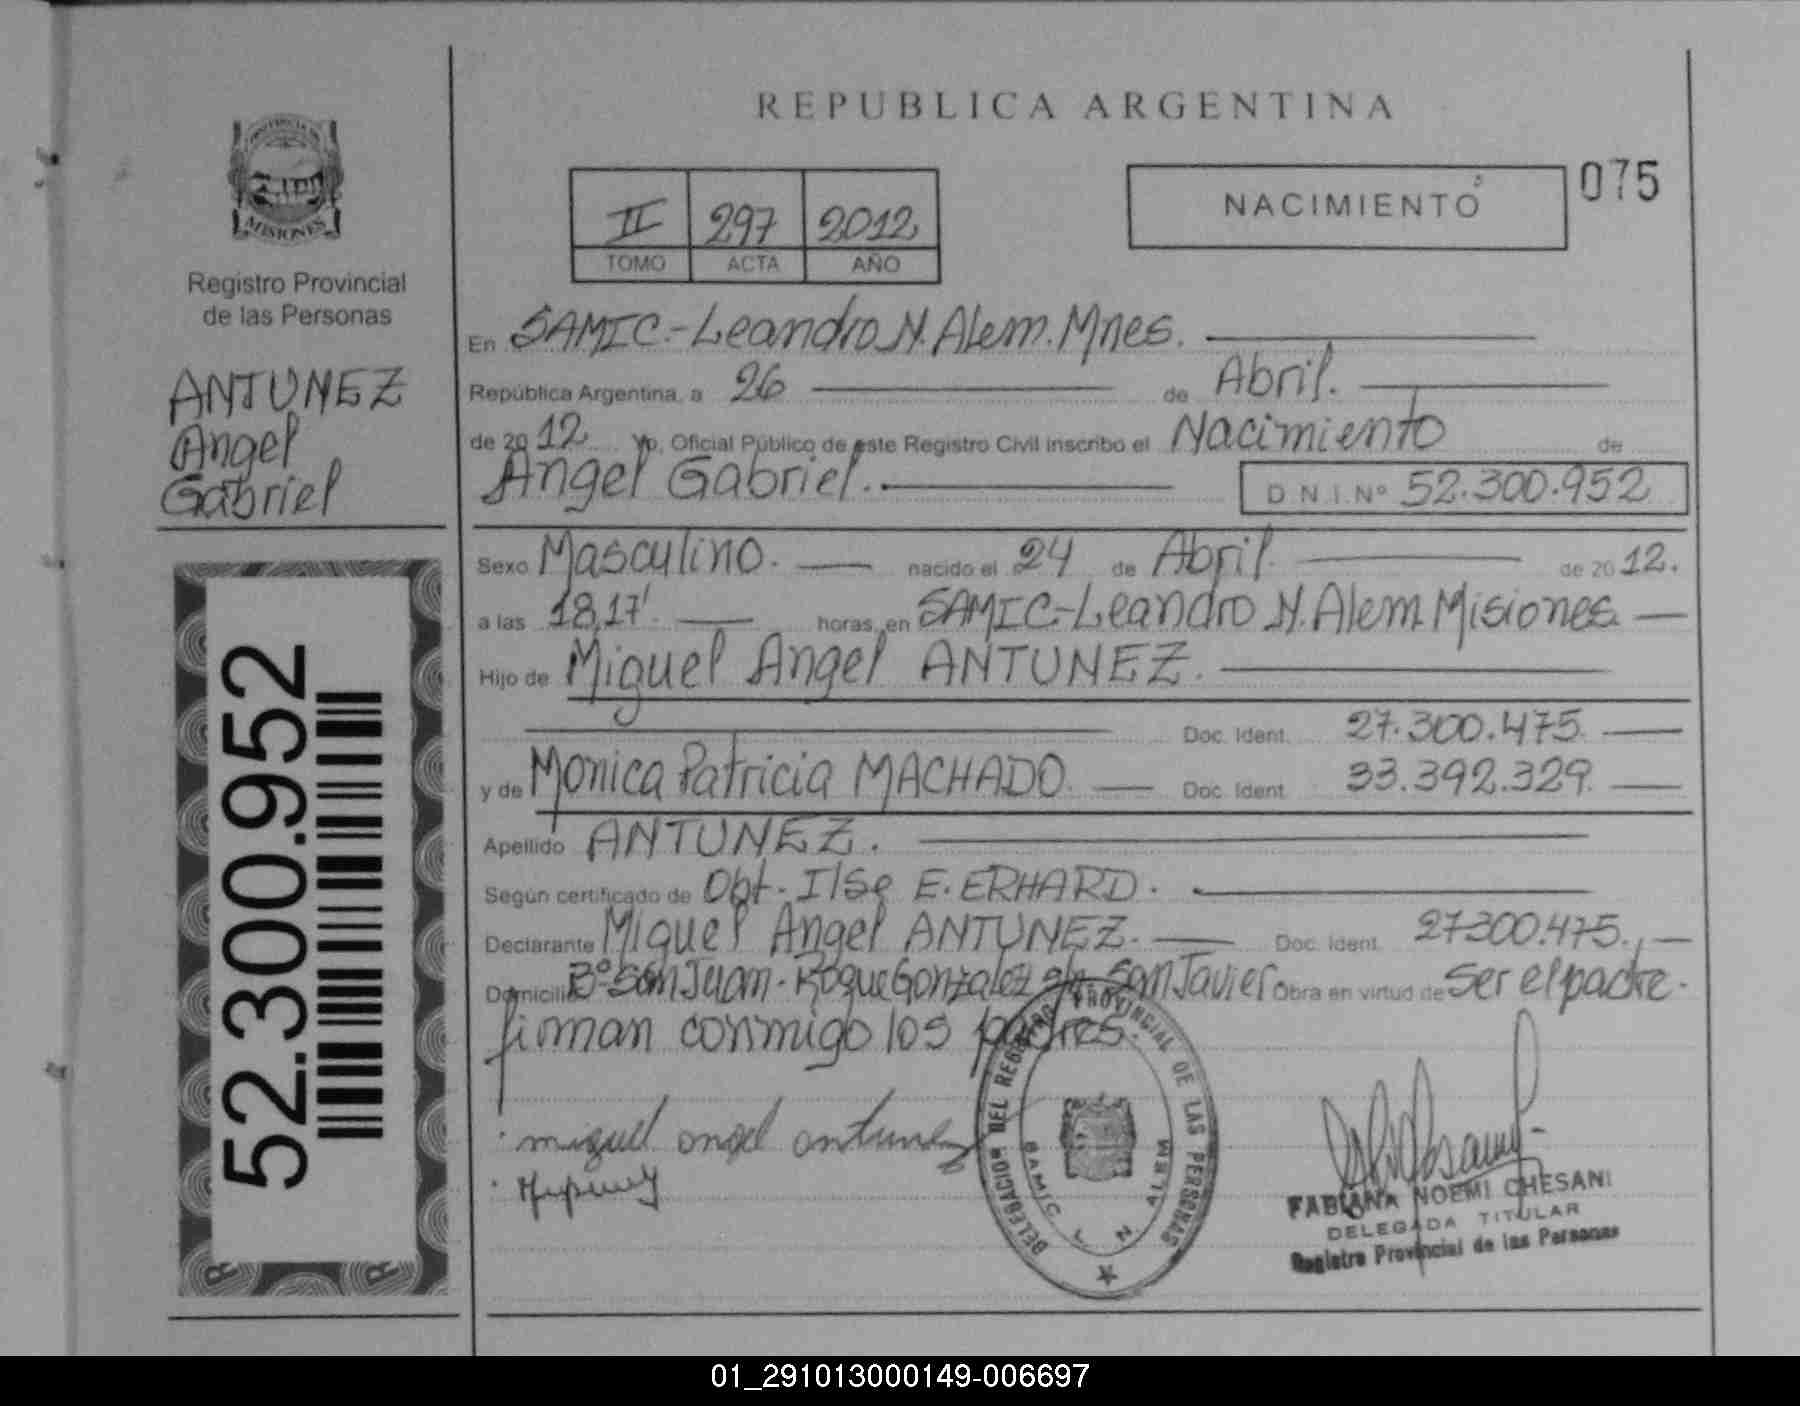 REPUBLICA ARGENTINA
MISIONES
Registro Provincial
de las Personas
ANTUNEZ
Angel
Gabriel
52.300.952
II 297 2012
TOMO ACTA AÑO
NACIMIENTO
075
En SAMIC.-Leandro N. Alem. Mnes.
República Argentina, a 26 de Abril.
de 2012 Yo, Oficial Público de este Registro Civil inscribo el Nacimiento de
Angel Gabriel. D.N.I. Nº 52.300.952
Sexo Masculino. nacido el 24 de Abril. de 2012.
a las 18,17' horas, en SAMIC-Leandro N. Alem Misiones.
Hijo de Miguel Angel ANTUNEZ.
Doc. Ident. 27.300.475.
y de Monica Patricia MACHADO. Doc. Ident. 33.392.329.
Apellido ANTUNEZ.
Según certificado de Obt. Ilse E. ERHARD.
Declarante Miguel Angel ANTUNEZ. Doc. Ident. 27300.475.
Domicilio Bº San Juan - Roque Gonzalez s/n San Javier Obra en virtud de Ser el padre.
firman conmigo los padres.
miguel angel antunez
DELEGACION DEL REGISTRO PROVINCIAL DE LAS PERSONAS
SAMIC L N ALEM
FABIANA NOEMI CHESANI
DELEGADA TITULAR
Registro Provincial de las Personas
01_291013000149-006697